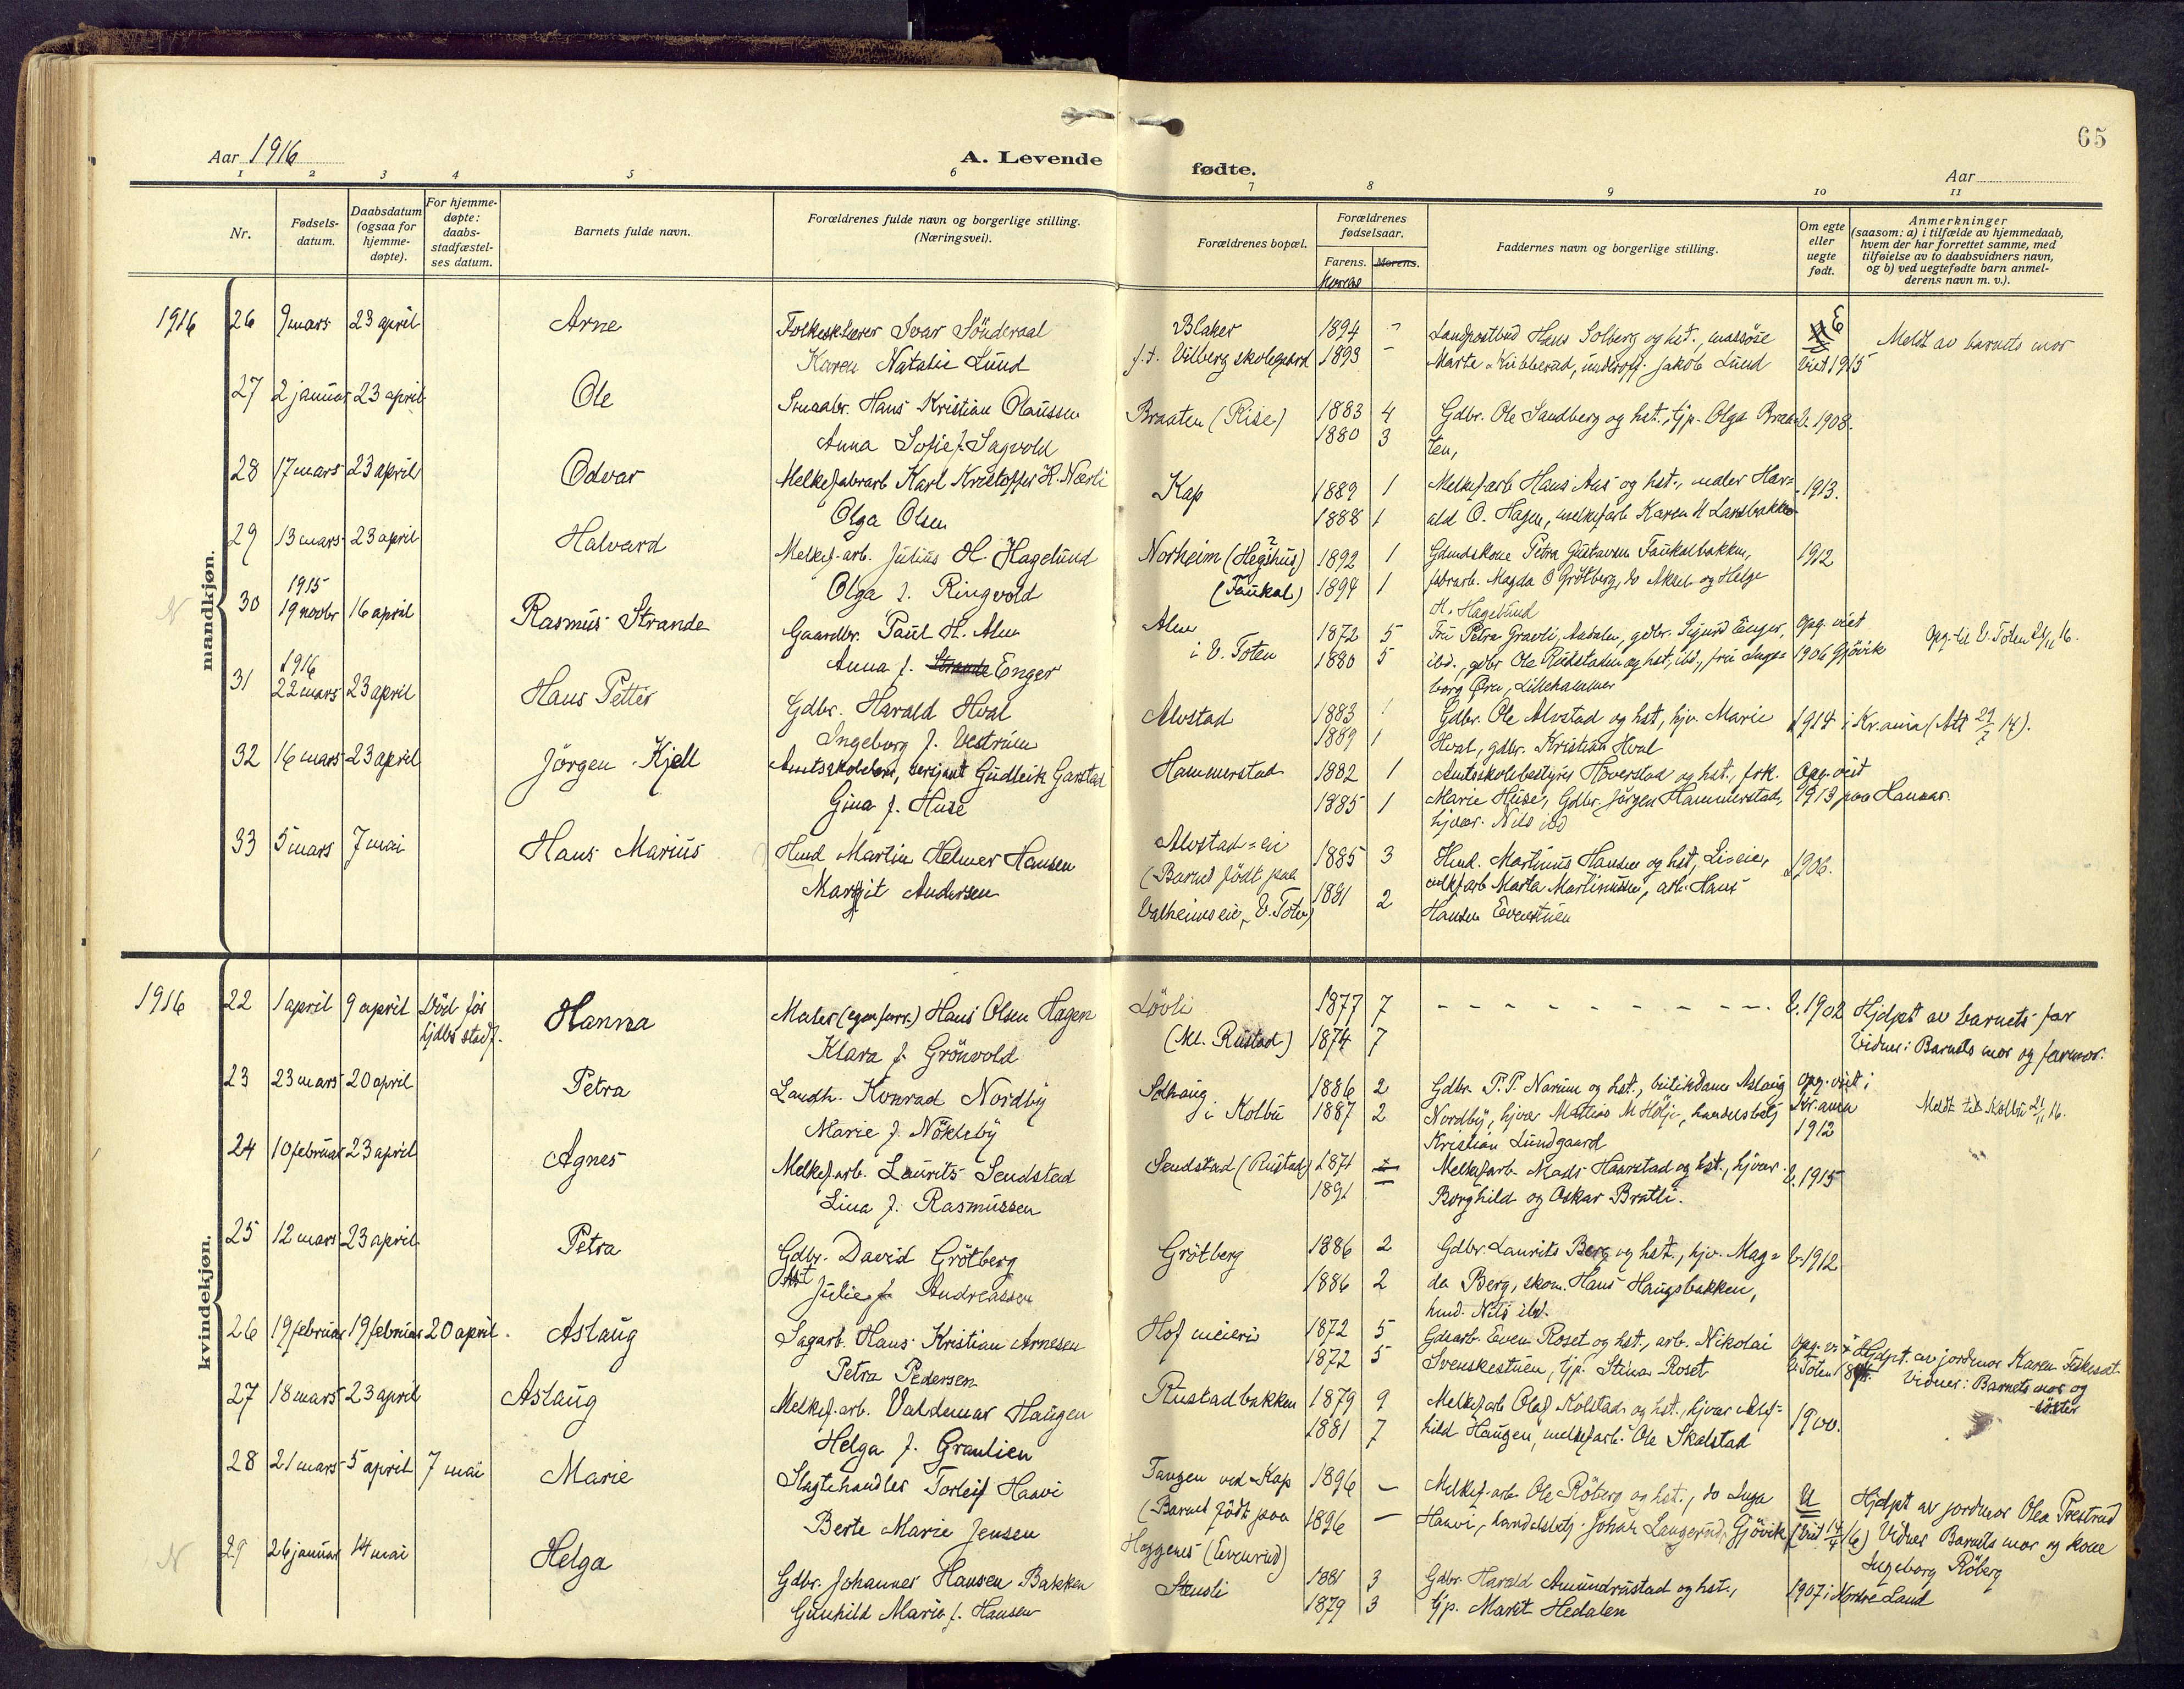 65
Aar 1916
A. Levende fødte.
Aar
1 2 3 4 5 6 7 8 9 10 11
Nr.
Fødsels-
datum.
Daabsdatum
(ogsaa for
hjemme-
døpte).
For hjemme-
døpte:
daabs-
stadfæstel-
ses datum.
Barnets fulde navn.
Forældrenes fulde navn og borgerlige stilling.
(Næringsvei).
Forældrenes bopæl.
Forældrenes
fødselsaar.
Farens. Morens.
Morens
Faddernes navn og borgerlige stilling.
Om egte
eller
uegte
født.
Anmerkninger
(saasom: a) i tilfælde av hjemmedaab,
hvem der har forrettet samme, med
tilføielse av to daabsvidners navn,
og b) ved uegtefødte barn anmel-
derens navn m. v.).
mandkjøn.
1916 26 9 mars 23 april Arne Folkesk.lærer Ivar Sönderaal Blaker 1894 - Landpostbud Hans Solberg og hst., E Meldt av barnets mor
Karen Natalie Lund f.t. Vilberg skolegaard 1893 - Marte Kibberud, underoff. Jakob Lund Viet 1915
27 2 januar 23 april Ole Smaabr. Hans Kristian Olaussen Braaten (Rise) 1883 4 Gdbr. Ole Sandberg og hst., tjp. Olga Braa- V. 1908.
Anna Sofie f. Sagvold 1880 3 ten,
28 17 mars 23 april Odvar Melkefabrarb Karl Kristoffer H. Nærli Kap 1889 1 Melkefarb Hans Aas og hst., maler Har= 1913.
Olga Olsen 1888 1 ald O. Hagen, melkefarb Karen H Landbakken
29 13 mars 23 april Halvard Melkef.arb. Julius H. Hagelund Norheim (Hegshus) 1892 1 Gdmdskone Petra Gustavsen Faukalbakken, 1912
Olga f. Ringvold (Faukal) 1894 1 fabrarb. Magda O Grötberg, do Aksel og Helge
H. Hagelund
30 1915
19 novbr 16 april Rasmus Strande Gaardbr. Paul H. Alm Alm 1872 5 Fru Petra Gravli, Aadalen, gdbr. Sigurd Enger, Opg. viet Opg. til V. Toten 21/11 16.
Anna f. Strande Enger i V. Toten 1880 5 ibd., gdbr Ole Rustaden og hst, ibd., fru Inge= 1906 Gjövik
borg Ören, Lillehammer
31 1916
22 mars 23 april Hans Petter Gdbr. Harald Hval Alvstad 1883 1 Gdbr. Ole Alvstad og hst, hjv. Marie 1914 i Kr.ania (Att 29/7 14).
Ingeborg f. Vestrum 1889 1 Hval, gdbr. Kristian Hval
32 16 mars 23 april Jörgen Kjell Amtsskolelærer, sersjant Gudleik Garstad Hammerstad 1882 1 Amtsskolebestyrer Hoverstad og hst., frk. Opg. viet
Gina f. Huse 1885 1 Marie Huse, Gdbr. Jörgen Hammerstad, 1913 paa Hamar.
hjvær. Nils ibd
33 5 mars 7 mai Hans Marius Hmd Martin Helmer Hansen Alvstad=ei 1885 3 Hmd. Martinus Hansen og hst, Liseie, 1906.
Margit Andersen (Barnet födt paa 1881 2 melkfarb Marta Martinussen, arb. Hans
Valheimseie, V. Toten) Hansen Evenstuen
kvindekjøn.
1916 22 1 april 9 april Död för Hanna Maler (egen forr.) Hans Olsen Hagen Lövli 1877 7 - - - - - - - - - - V. 1902 Hjdpt av barnets far
hjdbs stadf. Klara f. Grönvold (Ml. Rustad) 1874 7 Vidner: Barnets mor og farmor.
23 23 mars 20 april Petra Landh. Konrad Nordby Solhaug 1886 2 Gdbr. P. P. Narum og hst., butikdame Aslaug Opg. viet i
Marie f. Nökleby i Kolbu 1887 2 Nordby, hjvær Mattias M Hölje, handelsbetj Kr.ania Meldt til Kolbu 21/11 16.
Kristian Lundgaard 1912
24 10 februar 23 april Agnes Melkef.arb. Laurits Sendstad Sendstad (Rustad) 1871 Melkefarb. Mads Haarstad og hst., hjvær. V. 1915
Lina f. Rasmussen 1891 - Borghild og Oskar Bratli.
25 12 mars 23 april Petra Gdbr. David Grötberg Grötberg 1886 2 Gdbr. Laurits Berg og hst., hjv. Mag= V. 1912
Hst Julie f. Andreassen 1886 2 da Berg, skom. Hans Haugsbakken,
hmd. Nils ibd.
26 19 februar 19 februar 20 april. Aslaug Sagarb. Hans Kristian Arnesen Hof meieri 1872 5 Gdsarb. Even Roset og hst., arb. Nikolai Opg. vi i Hjdpt. av jordmor Karen Fiskesat
Petra Pedersen 1872 5 Svenskestuen, tjp. Stina Roset V. Toten Vidner: Barnets mor og
söster
27 18 mars 23 april Aslaug Melkef.arb. Valdemar Haugen Rustadbakken 1879 9 Melkefarb Olaf Kolstad og hst., hjvær Alf= 1900.
Helga f. Granlien 1881 7 hild Haugen, melkefarb. Ole Skolstad
28 21 mars 5 april 7 mai Marie Slagtehandler Torleif Haavi Tangen ved Kap 1896 - Melkef.arb Ole Röberg og hst., do Inga U Hjdpt av jordmor Olea Prestrud
Berte Marie Jensen (Barnet födt paa 1896 - Haavi, handelsbetj. Johan Langerud, Gjövik (Viet 14/4 16) Vidner Barnets mor og kone
Haggenes (Evenrud) Ingeborg Röberg
N 29 26 januar 14 mai Helga Gdbr. Johannes Hansen Bakken Stensli 1881 3 Gdbr. Harald Amundrustad og hst.,
Gunhild Marie f. Hansen 1879 3 tjp. Marit Hedalen 1907 i Nordre Land